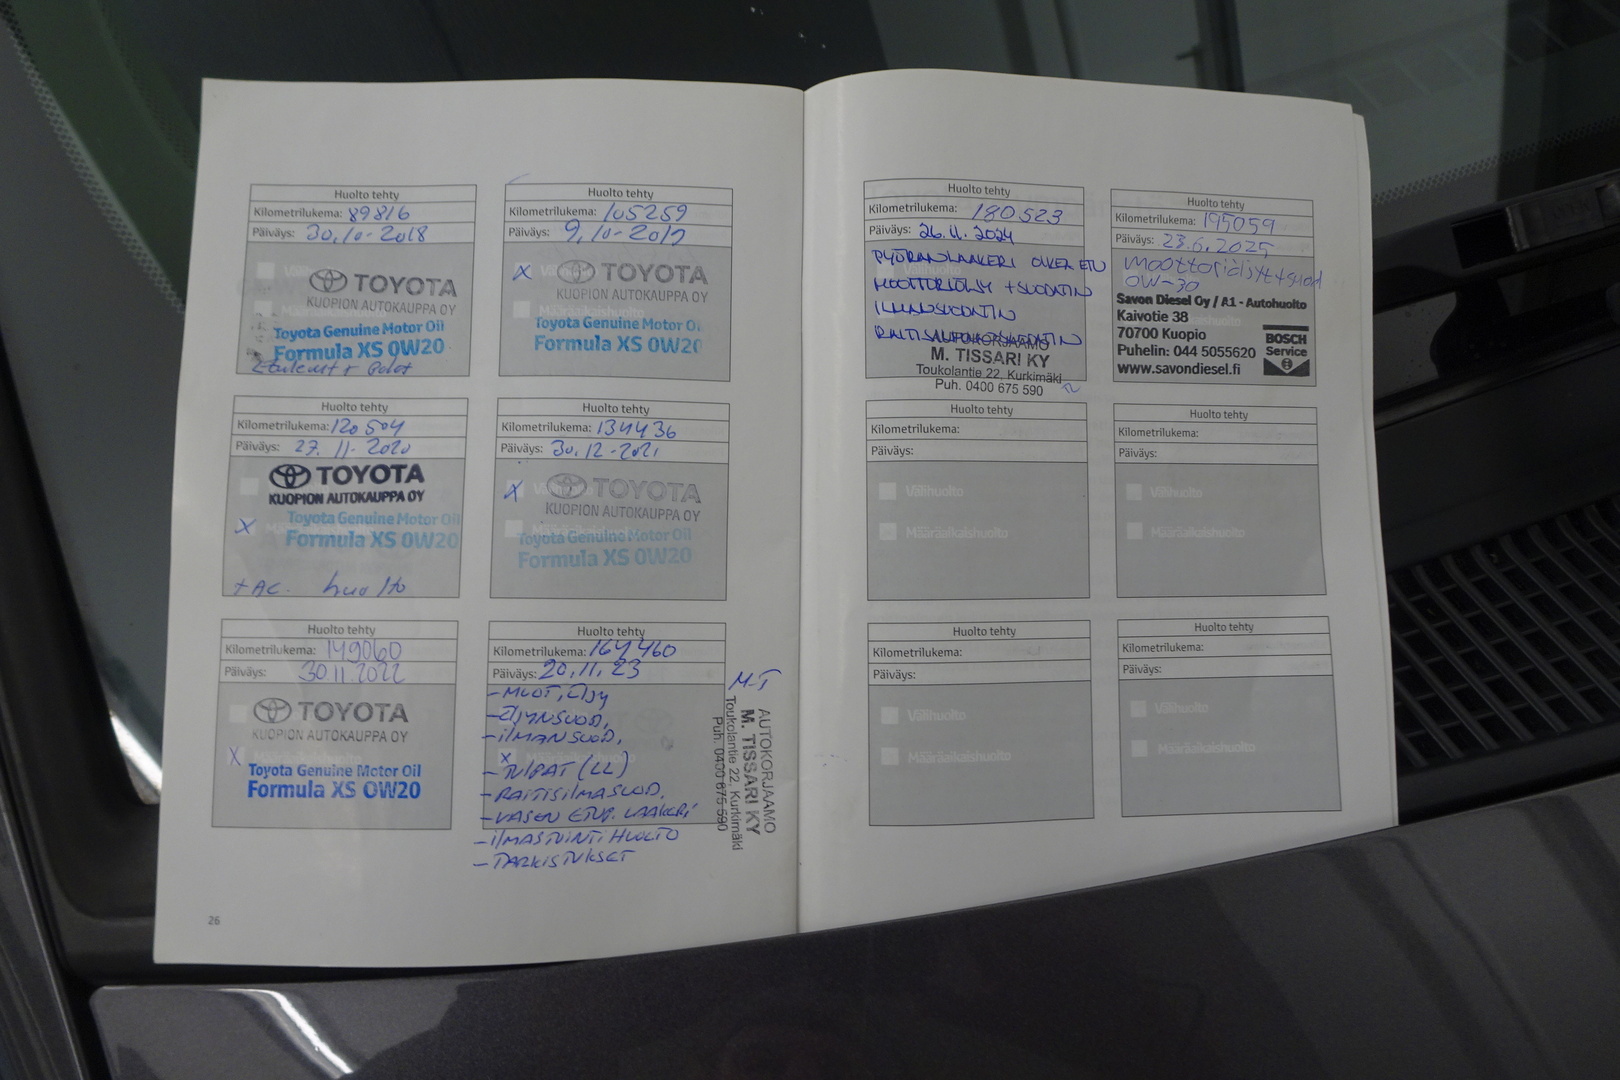 Huolto tehty
Kilometrilukema: 89816
Päiväys: 30.10-2018
TOYOTA
KUOPION AUTOKAUPPA OY
Toyota Genuine Motor Oil
Formula XS 0W20
Huolto tehty
Kilometrilukema: 105259
Päiväys: 9.10-2019
X
TOYOTA
KUOPION AUTOKAUPPA OY
Toyota Genuine Motor Oil
Formula XS 0W20
Huolto tehty
Kilometrilukema: 120504
Päiväys: 27.11-2020
TOYOTA
KUOPION AUTOKAUPPA OY
X
Toyota Genuine Motor Oil
Formula XS 0W20
+ AC. huolto
Huolto tehty
Kilometrilukema: 134436
Päiväys: 30.12-2021
X Välihuolto
TOYOTA
KUOPION AUTOKAUPPA OY
Määräaikaishuolto
Toyota Genuine Motor Oil
Formula XS 0W20
Huolto tehty
Kilometrilukema: 149060
Päiväys: 30.11.2022
TOYOTA
KUOPION AUTOKAUPPA OY
X Määräaikaishuolto
Toyota Genuine Motor Oil
Formula XS 0W20
Huolto tehty
Kilometrilukema: 164460
Päiväys: 20.11.23
- MOOT.ÖLJY
- ÖLJYNSUOD.
- ILMANSUOD.
X
- TULPAT (LL)
- RAITISILMASUOD.
- VASEN ETUP. LAAKERI
- ILMASTOINTIHUOLTO
- TARKISTUKSET
M-T
AUTOKORJAAMO
M. TISSARI KY
Toukolantie 22, Kurkimäki
Puh. 0400 675 590
26
Huolto tehty
Kilometrilukema: 180523
Päiväys: 26.11.2024
PYÖRÄNLAAKERI OIKEA ETU
MOOTTORIÖLJY + SUODATIN
ILMANSUODATIN
AUTOKORJAAMO
M. TISSARI KY
Toukolantie 22, Kurkimäki
Puh. 0400 675 590
Huolto tehty
Kilometrilukema: 195059
Päiväys: 23.6.2025
Moottoriöljyt+suod
0W-30
Savon Diesel Oy / A1 - Autohuolto
Kaivotie 38
70700 Kuopio
Puhelin: 044 5055620
www.savondiesel.fi
BOSCH
Service
Huolto tehty
Kilometrilukema:
Päiväys:
Välihuolto
Määräaikaishuolto
Huolto tehty
Kilometrilukema:
Päiväys:
Välihuolto
Määräaikaishuolto
Huolto tehty
Kilometrilukema:
Päiväys:
Välihuolto
Määräaikaishuolto
Huolto tehty
Kilometrilukema:
Päiväys:
Välihuolto
Määräaikaishuolto